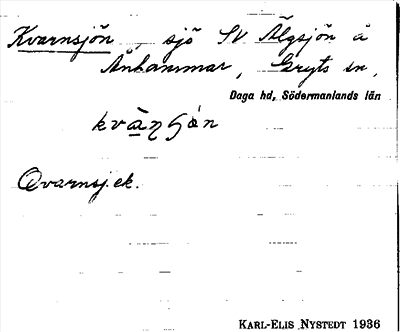 Kvarnsjön, sjö SV Älgsjön å
Ånhammar, Gryts sn,
Daga hd, Södermanlands län
kvàṇʂǿn
Qvarnsj. ek.
KARL-ELIS NYSTEDT 1936